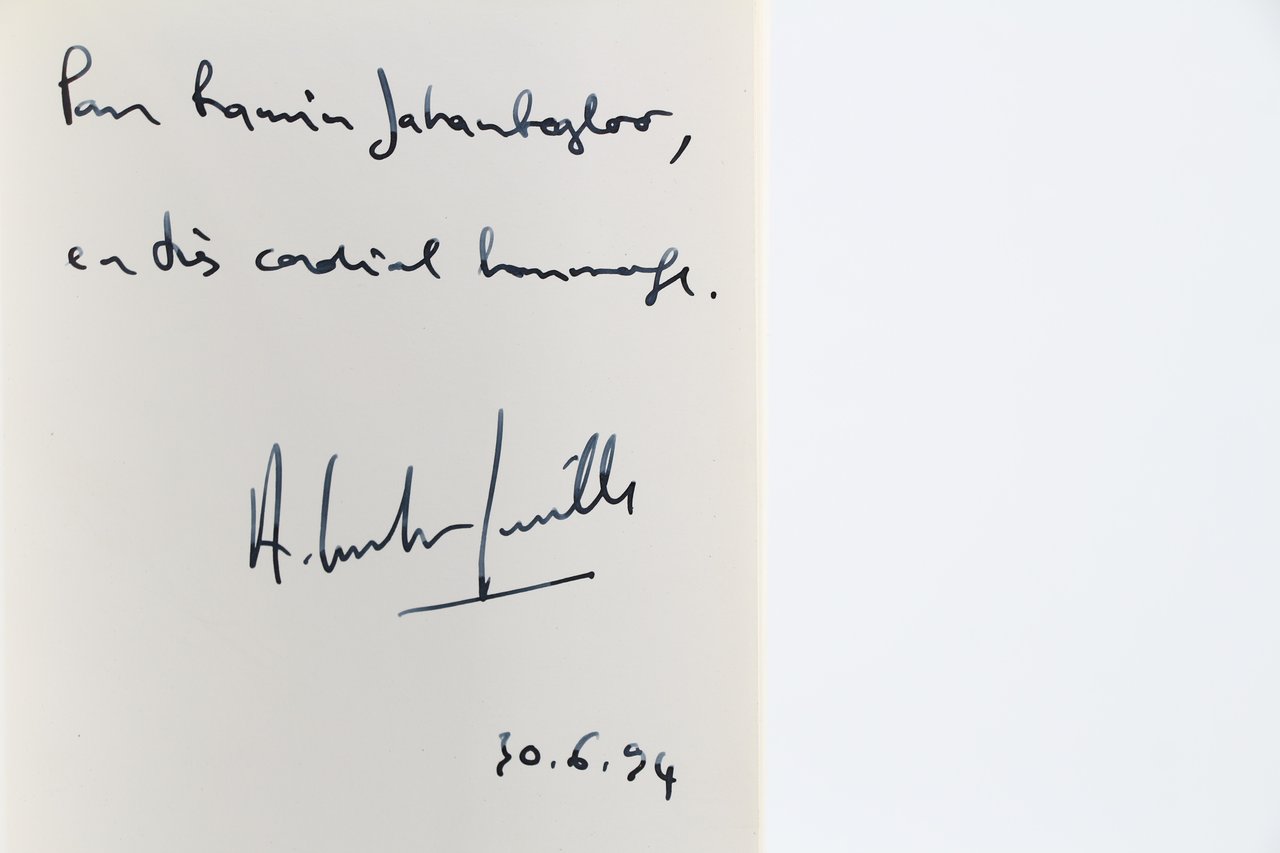 Pour Ramin Jahanbegloo,
en très cordial hommage.
A. Comte-Sponville
30.6.94